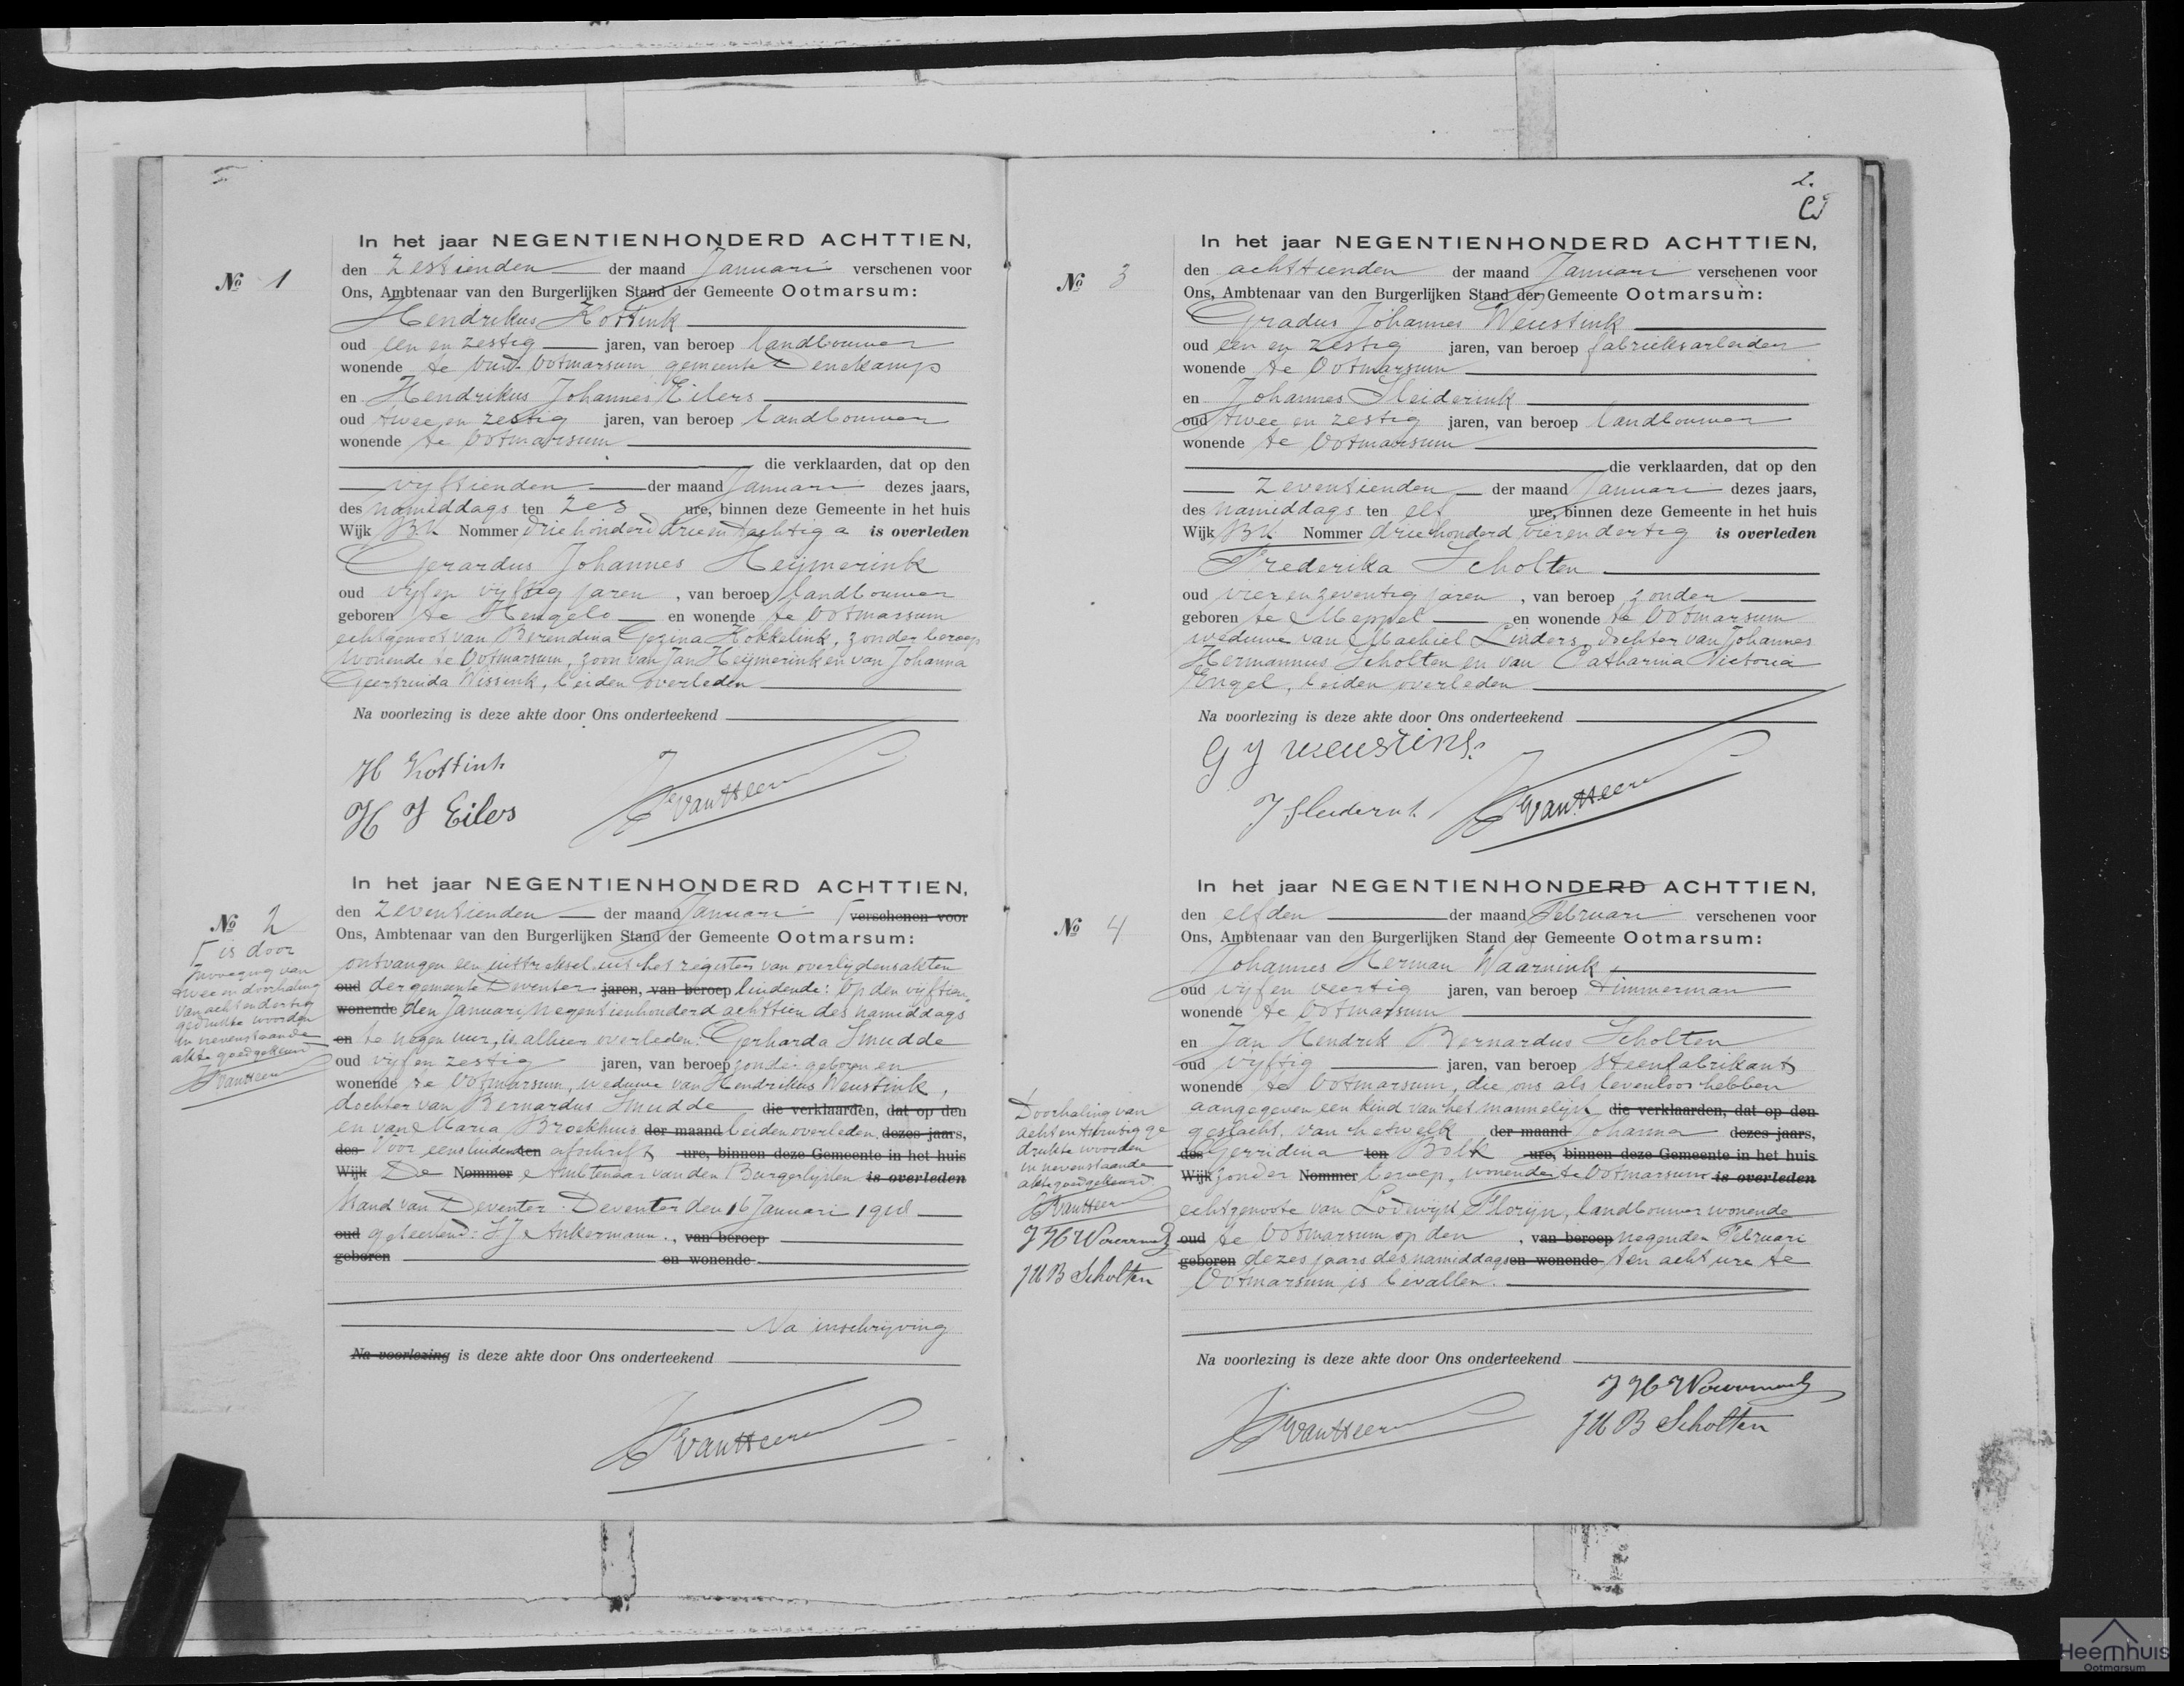 In het jaar NEGENTIENHONDERD ACHTTIEN,
№ 1
den zestienden der maand Januari verschenen voor
Ons, Ambtenaar van den Burgerlijken Stand der Gemeente Ootmarsum:
Hendrikus Kottink
oud een en zestig jaren, van beroep landbouwer
wonende te Oud Ootmarsum gemeente Denekamp
en Hendrikus Johannes Eilers
oud twee en zestig jaren, van beroep landbouwer
wonende te Ootmarsum
die verklaarden, dat op den
vijftienden der maand Januari dezes jaars,
des namiddags ten zes ure, binnen deze Gemeente in het huis
Wijk BK Nommer driehonderd drieentachtig a is overleden
Gerardus Johannes Heijmerink
oud vijfen vijftig jaren, van beroep landbouwer
geboren te Hengelo en wonende te Ootmarsum
echtgenoot van Berendina Gezina Hokkelink, zonder beroep
wonende te Ootmarsum, zoon van Jan Heijmerink en van Johanna
Geertruida Wissink, beiden overleden
Na voorlezing is deze akte door Ons onderteekend
H Kottink
H J Eilers
van Heen
In het jaar NEGENTIENHONDERD ACHTTIEN,
№ 2
den zeventienden der maand Januari verschenen voor
Ons, Ambtenaar van den Burgerlijken Stand der Gemeente Ootmarsum:
ontvangen een uittreksel uit het register van overlijdensakten
oud der gemeente Deventer jaren, van beroep luidende: Op den vijftien
wonende den Januari negentienhonderd achttien des namiddags
en te negen uur, is alhier overleden: Gerharda Smudde
oud vijf en zestig jaren, van beroep zonder geboren en
wonende te Ootmarsum, weduwe van Hendrikus Weustink,
dochter van Bernardus Smudde die verklaarden, dat op den
en van Maria Broekhuis der maand beiden overleden. dezes jaars,
des Voor eensluidend ten afschrift ure, binnen deze Gemeente in het huis
Wijk De Nommer Ambtenaar van den Burgerlijken is overleden
Stand van Deventer. Deventer den 16 Januari 1918
oud geteekend: Ankermann., van beroep
geboren en wonende
Na inschrijving
Na voorlezing is deze akte door Ons onderteekend
van Heen
is door
invoeging van
twee en doorhaling
van achtendertig
gedrukte woorden
in nevenstaande
akte goedgekeurd
van Heen
2.
In het jaar NEGENTIENHONDERD ACHTTIEN,
№ 3
den achttienden der maand Januari verschenen voor
Ons, Ambtenaar van den Burgerlijken Stand der Gemeente Ootmarsum:
Gradus Johannes Weustink
oud een en zestig jaren, van beroep fabrieksarbeider
wonende te Ootmarsum
en Johannes Sleiderink
oud twee en zestig jaren, van beroep landbouwer
wonende te Ootmarsum
die verklaarden, dat op den
zeventienden der maand Januari dezes jaars,
des namiddags ten elf ure, binnen deze Gemeente in het huis
Wijk BK Nommer driehonderd vierendertig is overleden
Frederika Scholten
oud vier en zeventig jaren, van beroep zonder
geboren te Meppel en wonende te Ootmarsum
weduwe van Machiel Linders, dochter van Johannes
Hermannus Scholten en van Catharina Victoria
Engel, beiden overleden
Na voorlezing is deze akte door Ons onderteekend
G J Weustink
J Sleiderink
van Heen
In het jaar NEGENTIENHONDERD ACHTTIEN,
№ 4
den elfden der maand Februari verschenen voor
Ons, Ambtenaar van den Burgerlijken Stand der Gemeente Ootmarsum:
Johannes Herman Waarnink
oud vijf en veertig jaren, van beroep timmerman
wonende te Ootmarsum
en Jan Hendrik Bernardus Scholten
oud vijftig jaren, van beroep steenfabrikant
wonende te Ootmarsum, die ons als levenloos hebben
aangegeven een kind van het mannelijk die verklaarden, dat op den
geslacht, van hetwelk der maand Johanna dezes jaars,
des Gerridina ten Bolk ure, binnen deze Gemeente in het huis
Wijk zonder Nommer beroep, wonende te Ootmarsum is overleden
echtgenoote van Lodewijk Florijn, landbouwer wonende
oud te Ootmarsum op den, van beroep negenden Februari
geboren dezes jaars des namiddags en wonende ten acht ure te
Ootmarsum is bevallen.
Na voorlezing is deze akte door Ons onderteekend
J H Waarnink
J H B Scholten
van Heen
Doorhaling van
achtentwintig ge
drukte woorden
in nevenstaande
akte goedgekeurd.
van Heen
J H Waarnink
J H B Scholten
Heemhuis
Ootmarsum